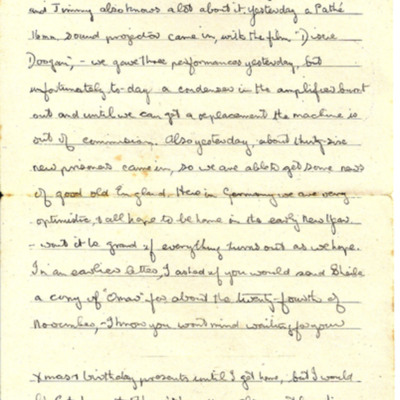 and Jimmy also knows a lot about it. Yesterday a Pathé
16mm sound projector came in, with the film "Dixie
Dugan", - we gave three performances yesterday, but
unfortunately to-day a condenser in the amplifier burnt
out and until we can get a replacement the machine is
out of commission. Also yesterday about thirty-six
new prisoners came in, so we are able to get some news
of good old England. Here in Germany we are very
optimistic, & all hope to be home in the early New Year
- won't it be grand if everything turns out as we hope.
In an earlier letter, I asked if you would send
a copy of "Omar" for about the twenty-fourth of
November, - I know you won't mind waiting for your
Xmas & birthday presents until I get home, but I would